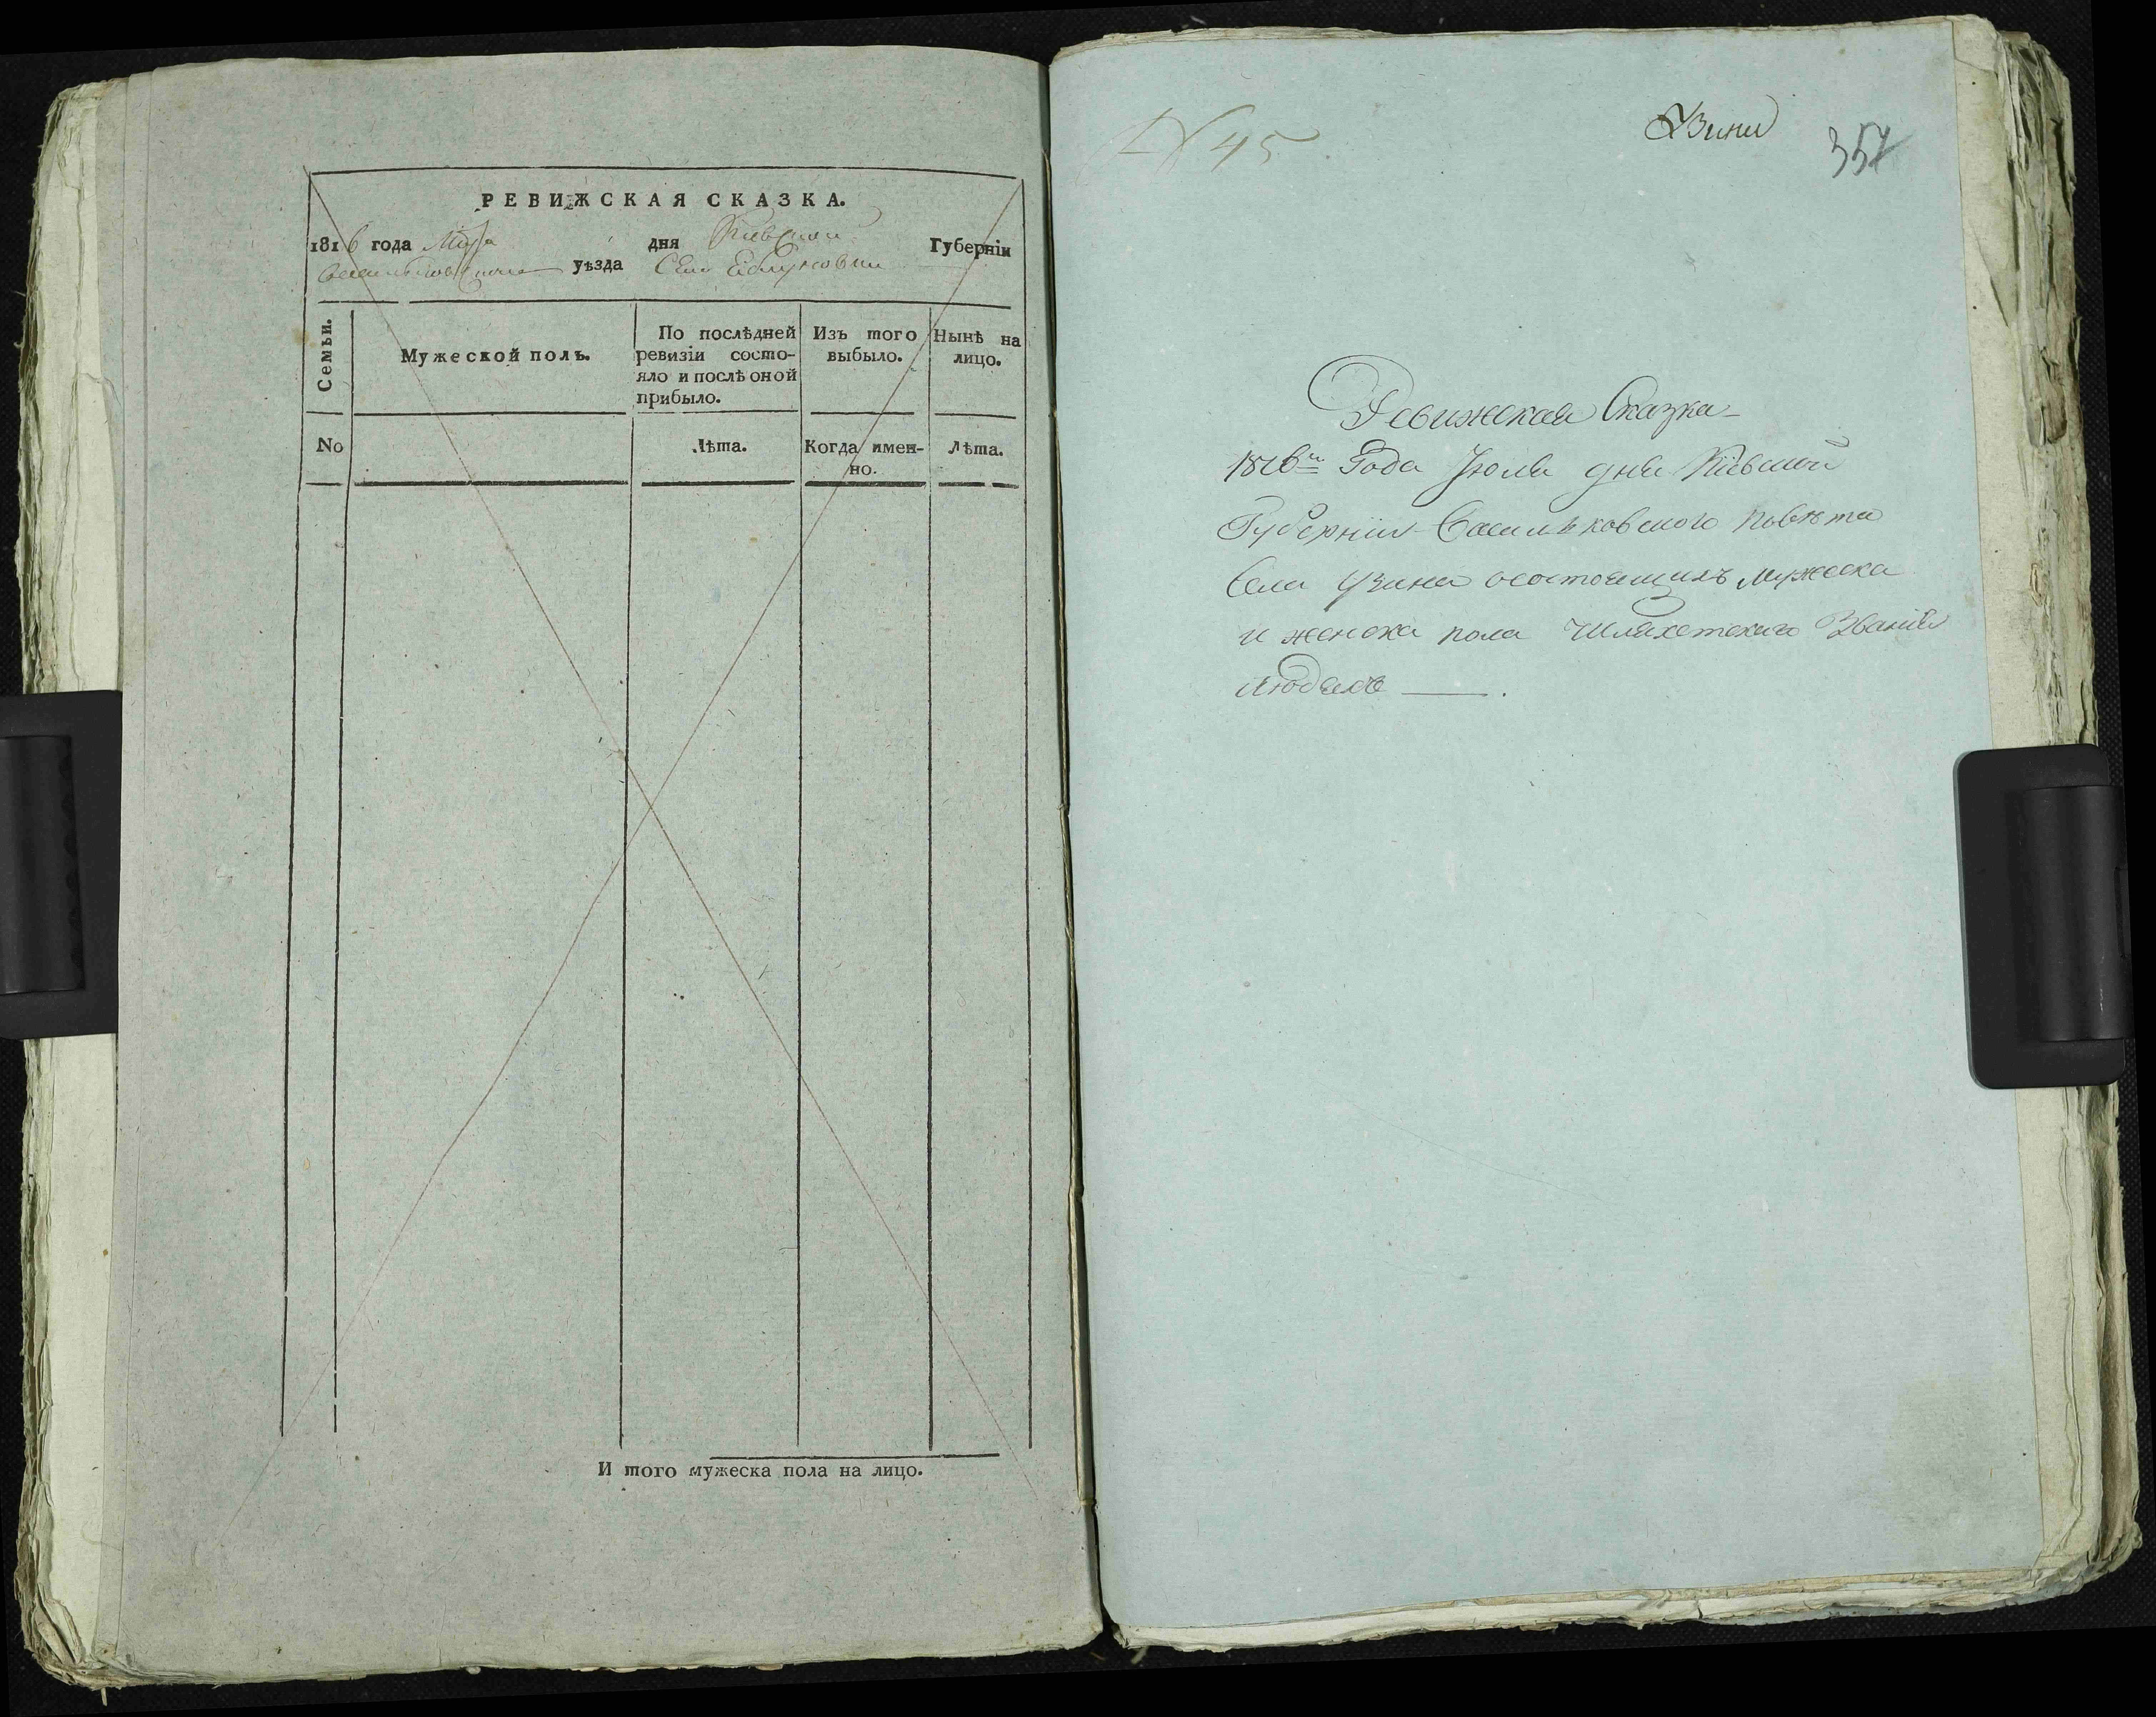 РЕВИЖСКАЯ СКАЗКА.
1816 года Маія дня Киевской Губерніи
Васильковского уѣзда Села Яблуновки
Семьи.
Мужеской полъ.
По послѣдней
ревизіи состо-
яло и послѣ оной
прибыло.
Изъ того
выбыло.
Нынѣ на
лицо.
No
Лѣта.
Когда имен-
но.
Лѣта.
И того мужеска пола на лицо.
N 45
Узини
357
Ревижская Сказка
1816го Года Іюля дня Кіевской
Губерніи Васильковского повѣта
Села Узина осостоящихъ мужеска
и женска пола Шляхетского Званія
людяхъ —.